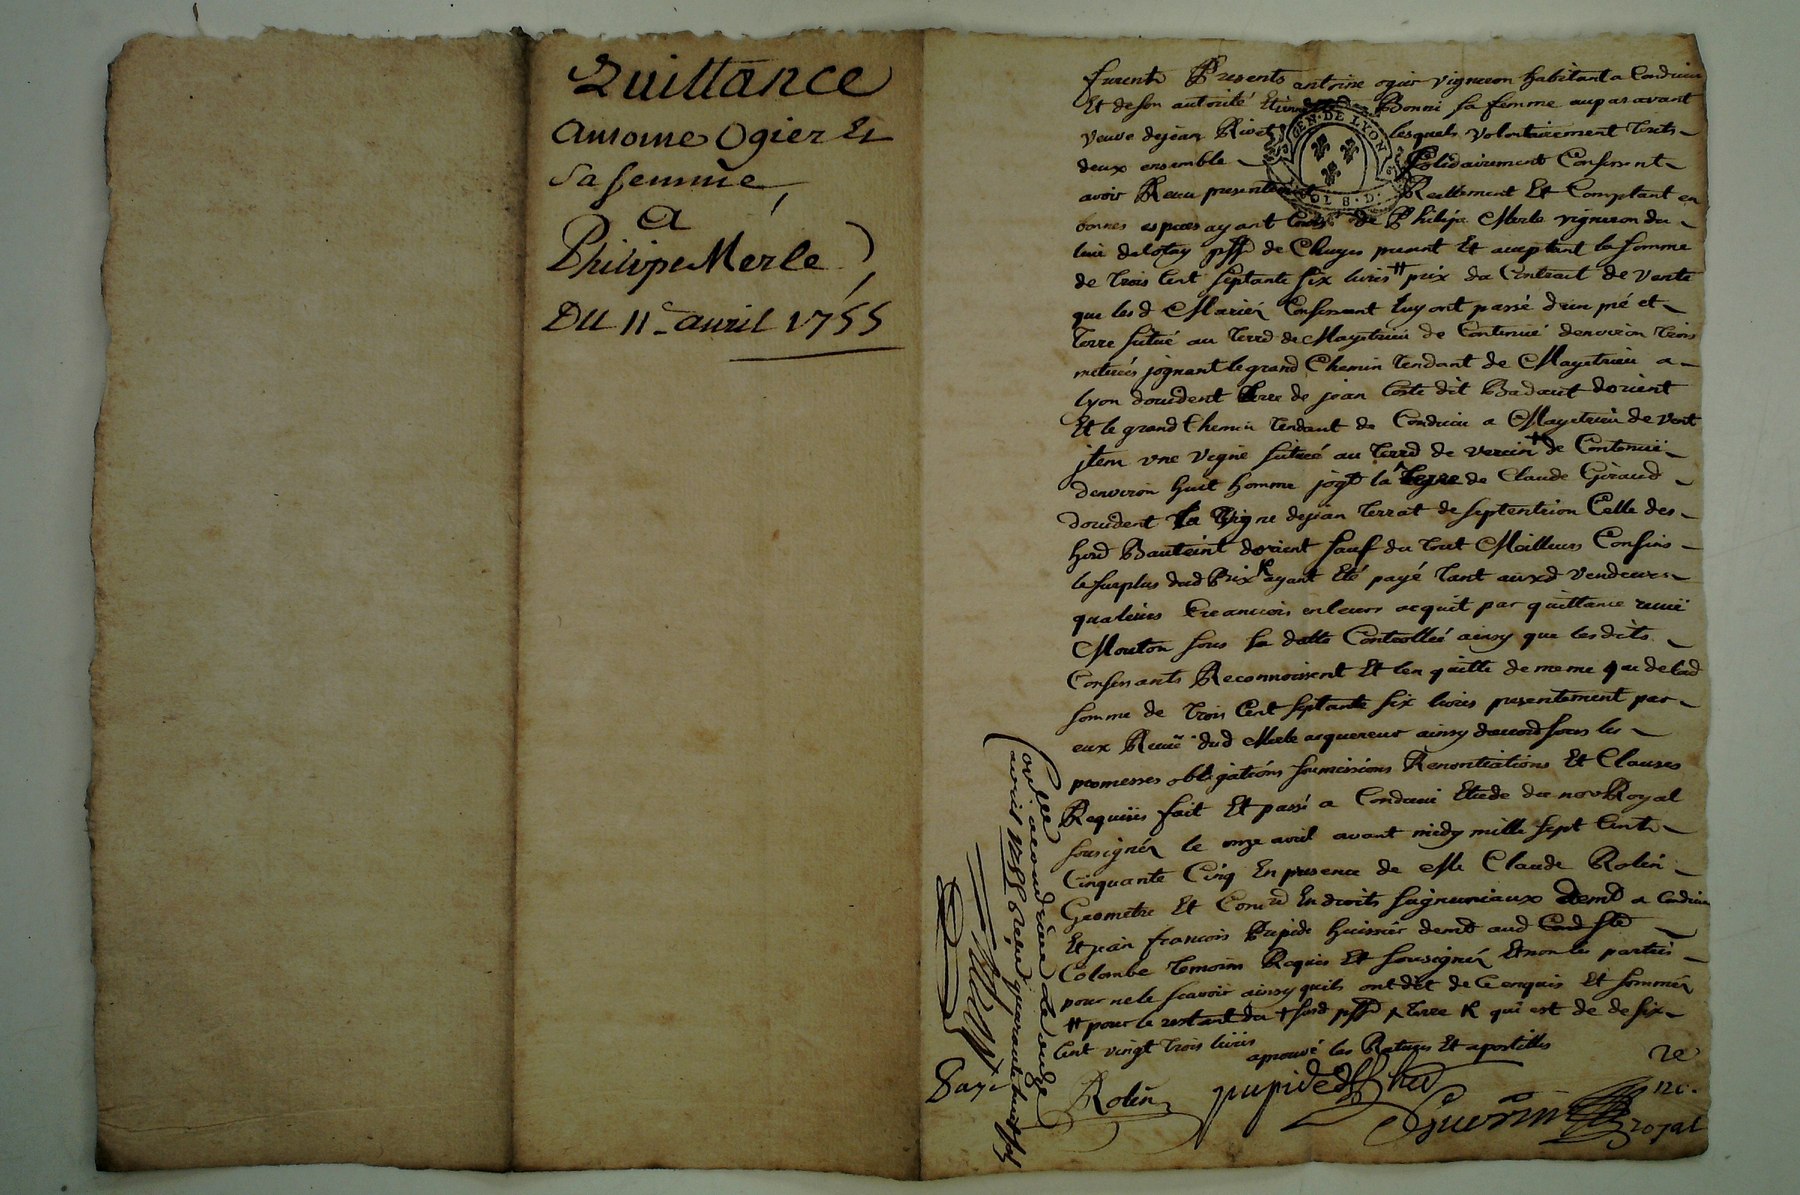 Quittance
Antoine Ogier Et
Sa femme
A
Philipe Merle
DU 11e avril 1755
furent Presents antoine ogier vigneron habitant a Condrieu
Et de son autorité Bonni sa femme auparavant
veuve dejean Rivet lesquels volontairement
deux ensemble solidairement Confessent
avoir Receu presentement Reellement Et Comptant en
bonnes especes ayant Cours de Philipe Merle vigneron du
lieu de de Chuyes present Et acceptant la somme
de trois Cent septante six livres # prix du Contract de vente
que lesd Mariés Confessant luy ont passé d'un pré et
terre situé au Terrd de Maystrieu de Contenue denviron trois
meterés joignant le grand Chemin tendant de Maystrieu a
Lyon doccident terre de jean Coste dit Badaut dorient
Et le grand Chemin tendant de Condrieu a Maystrieu de vent
jtem vne vigne situeé au Terrd de verein + de Contenue
denviron huit homme joigt la terre de Claude Giraud
doccident la vigne dejean Terrat de septentrion Celle des
hoird dorient sauf du tout Meilleurs Confins
le surplus dud Prix ayant Eté payé tant auxd vendeurs
qualeurs Creanciers en leurs acquit par quittance receue
Mouton sous sa datte Controllée ainsy que lesdits
Confessants Reconnoissent Et len quitte de meme que delad
somme de trois Cent septante six livres presentement par
eux Receue dud Merle acquereur ainsy daccord sous les
promesses obligations soumissions Renontiations Et Clauses
Requises fait Et passé a Condrieu Etude du nore Royal
sousignés le onze avril avant midy mille sept Cents
Cinquante Cinq En presence de Me Claude Robin
Geometre Et En droits seigneuriaux demt a Condrieu
Et jean francois Pupide huissier demt aud Cond Ste
Colombe temoins Requis Et sousignés Et non les parties
pour ne le scavoir ainsy quils ont dit de Ce enquis Et sommés
# pour le restant du + surd + terre qui est de de six
Cent vingt trois livres
aprouvé les Ratures Et apostilles
Robin
pupide
Guerin
re
nc.
royal
Collé a Condrieu le douze
avril 1755 Reçu quarante huit sols